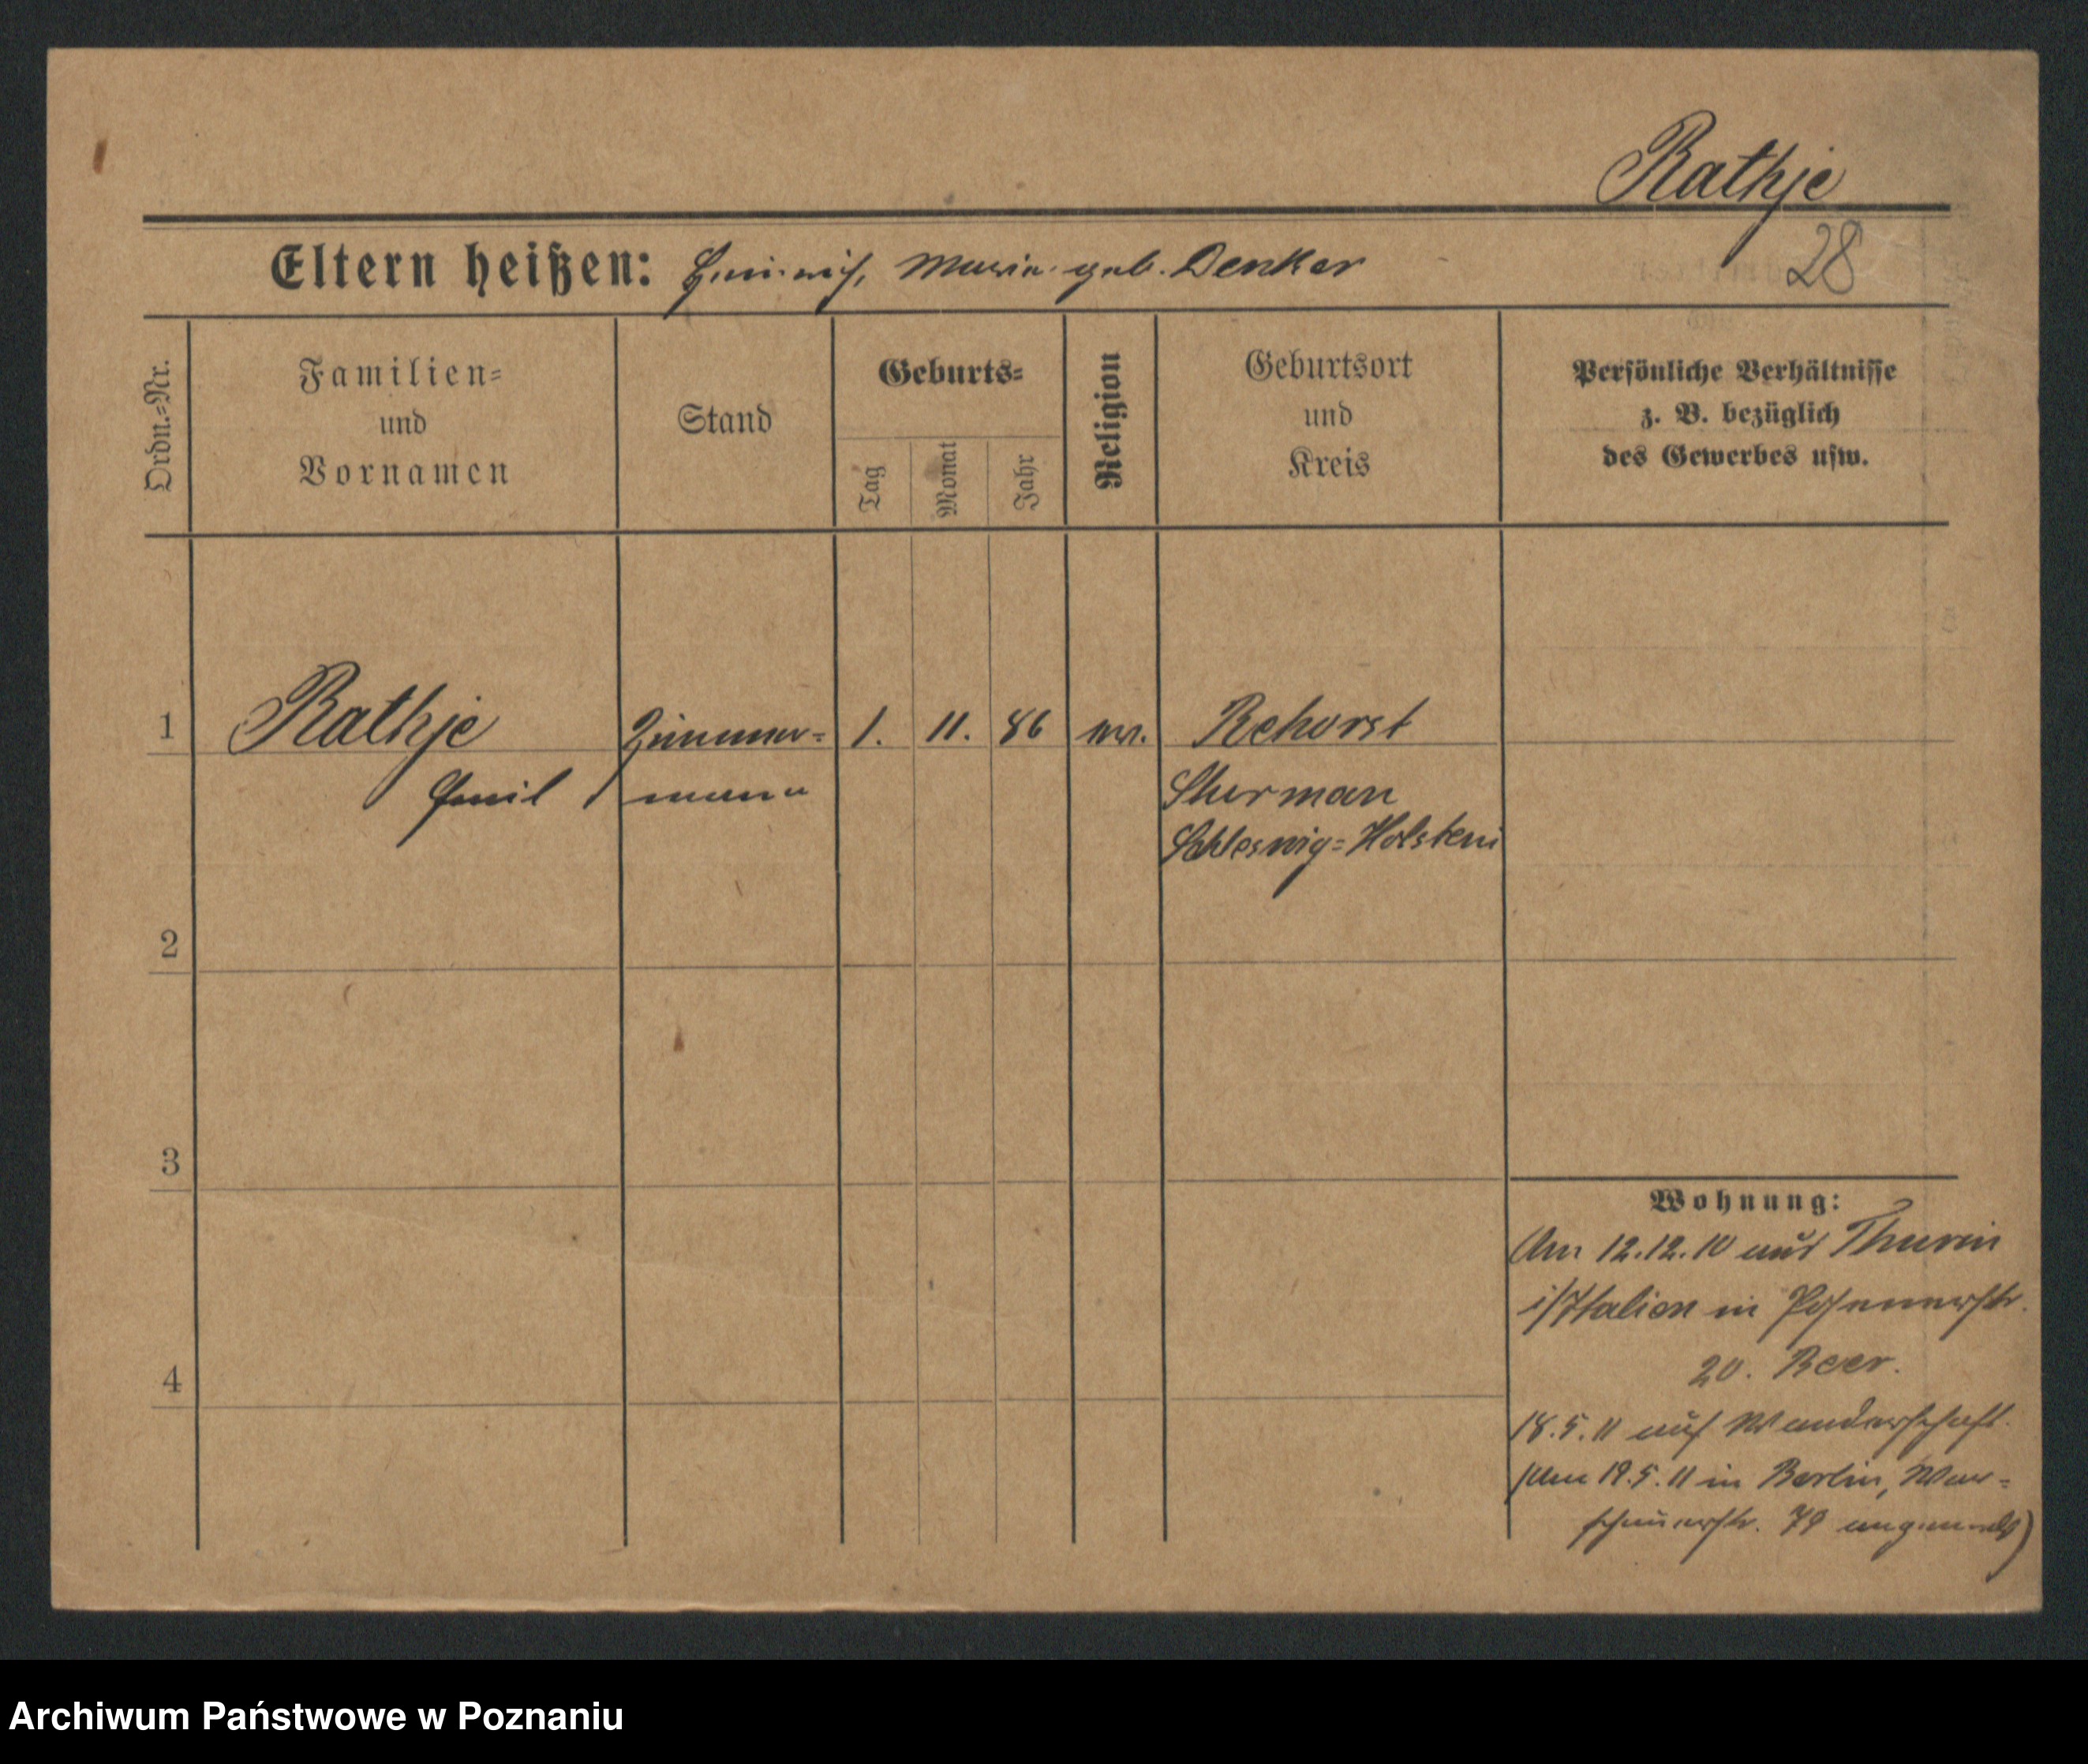 Rathje
28
Eltern heißen: Heinrich, Maria geb. Denker
Ordn.=Nr.
Familien=
und
Vornamen
Stand
Geburts=
Tag
Monat
Jahr
Religion
Geburtsort
und
Kreis
Persönliche Verhältnisse
z. B. bezüglich
des Gewerbes usw.
1 Rathje Zimmer= 1. 11. 86 ev. Rehorst
Emil mann Sturman
Schleswig=Holstein
2
3
4
Wohnung:
Am 12.12.10 aus Thurin
i/Italien in Posenerstr.
20. Beer.
18.5.11 auf Wanderschaft.
(Am 19.5.11 in Berlin, War=
schauerstr. 79 angemeldt)
Archiwum Państwowe w Poznaniu